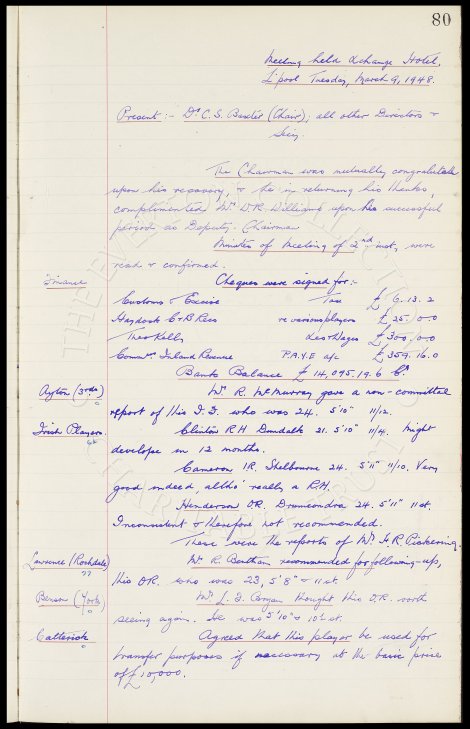 80
Meeting held Exchange Hotel,
L'pool Tuesday, March 9, 1948.
Present :- Dr C. S. Baxter (Chair), all other Directors &
Secy
The Chairman was mutually congratulated
upon his recovery, & he in returning his thanks,
complimented Mr W.R. Williams upon his successful
period as Deputy-Chairman
Minutes of Meeting of 2nd inst, were
read & confirmed.
Finance Cheques were signed for :-
Customs & Excise Tax £ 9. 13. 2
Haydock C & B Recs re various players £ 25. 0. 0
Theo Kelly Les & Wages £ 300. 0. 0
Commrs Inland Revenue P.A.Y.E a/c £ 359. 16. 0
Bank Balance £ 14,095. 19. 6 Cr
Ayton (3rds) Mr. R. McMurray gave a non-committal
report of this I.F. who was 24. 5'10" 11/2.
Irish Players. Clinton R.H Dundalk 21. 5'10" 11/4. Might
develope in 12 months.
Cameron I.R. Shelbourne 24. 5'11" 11/10. Very
good indeed, altho' really a R.H.
Henderson O.R. Drumcondra 24. 5'11" 11 st.
Inconsistent & therefore not recommended.
These were the reports of Mr F. R. Pickering.
Lawrence (Rochdale) Mr. R. Bentham recommended for following-up,
this O.R. who was 23, 5'8" & 11 st.
Benson (York) Mr. J. F. thought this O.R. worth
seeing again. He was 5'10" & 10½ st.
Catterick Agreed that this player be used for
transfer purposes if necessary at the basic price
of £10,000.
THE EVERTON COLLECTION
CHARITABLE TRUST